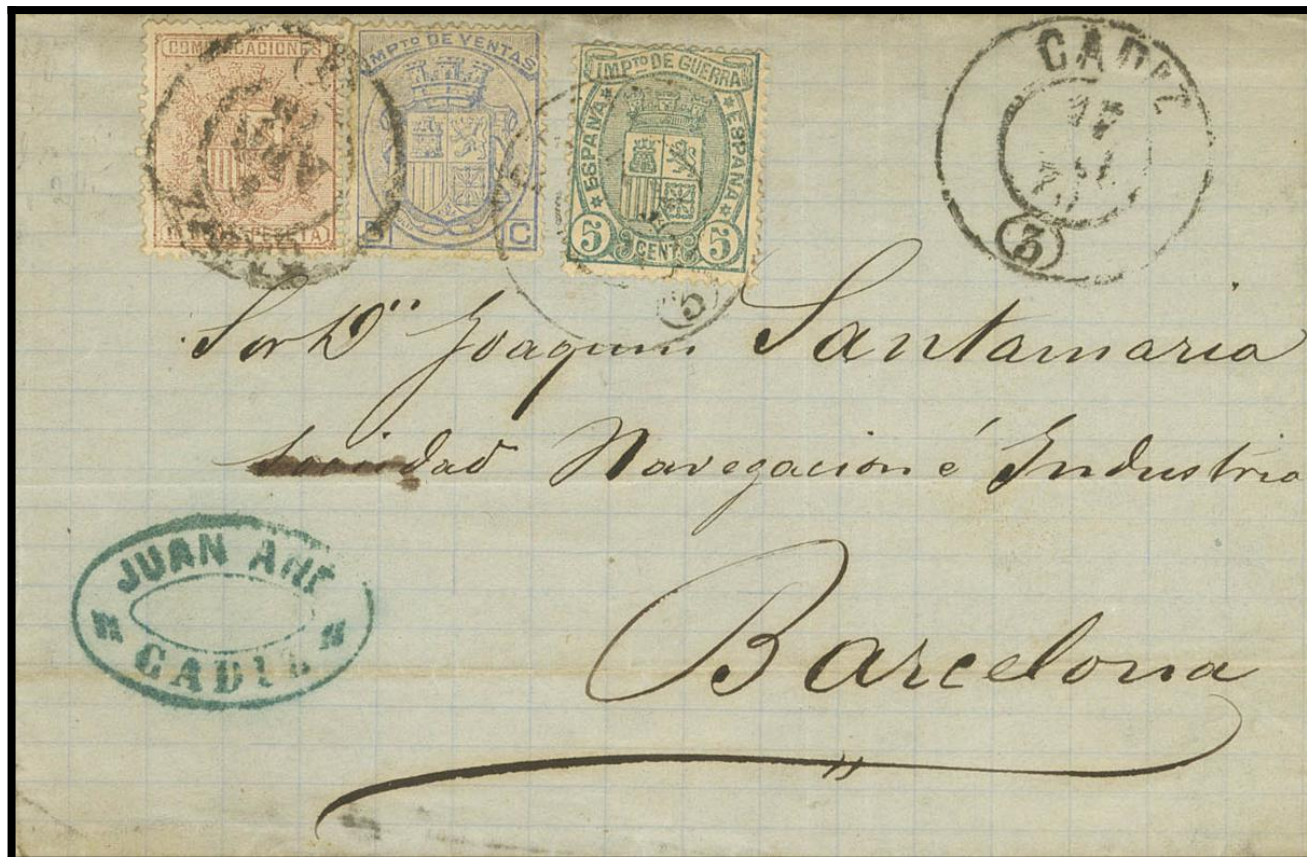 COMUNICACIONES
PESETA
IMPTO DE VENTAS
C
IMPTO DE GUERRA
ESPAÑA
ESPAÑA
5 CENT 5
CADIZ
3
5
Sor Dn Joaquin Santamaria
Sociedad Navegacion é Industria
Barcelona
JUAN
CADIZ